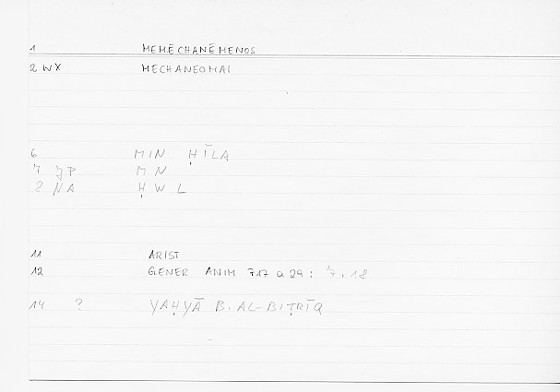 1 MEMĒCHANĒMENOS
2 WX MECHANEOMAI
6 MIN ḤĪLA
7 JP M N
8 NA Ḥ W L
11 ARIST
12 GENER ANIM 717 a 29 : 7, 18
14 ? YAḤYĀ B. AL-BIṬRĪQ